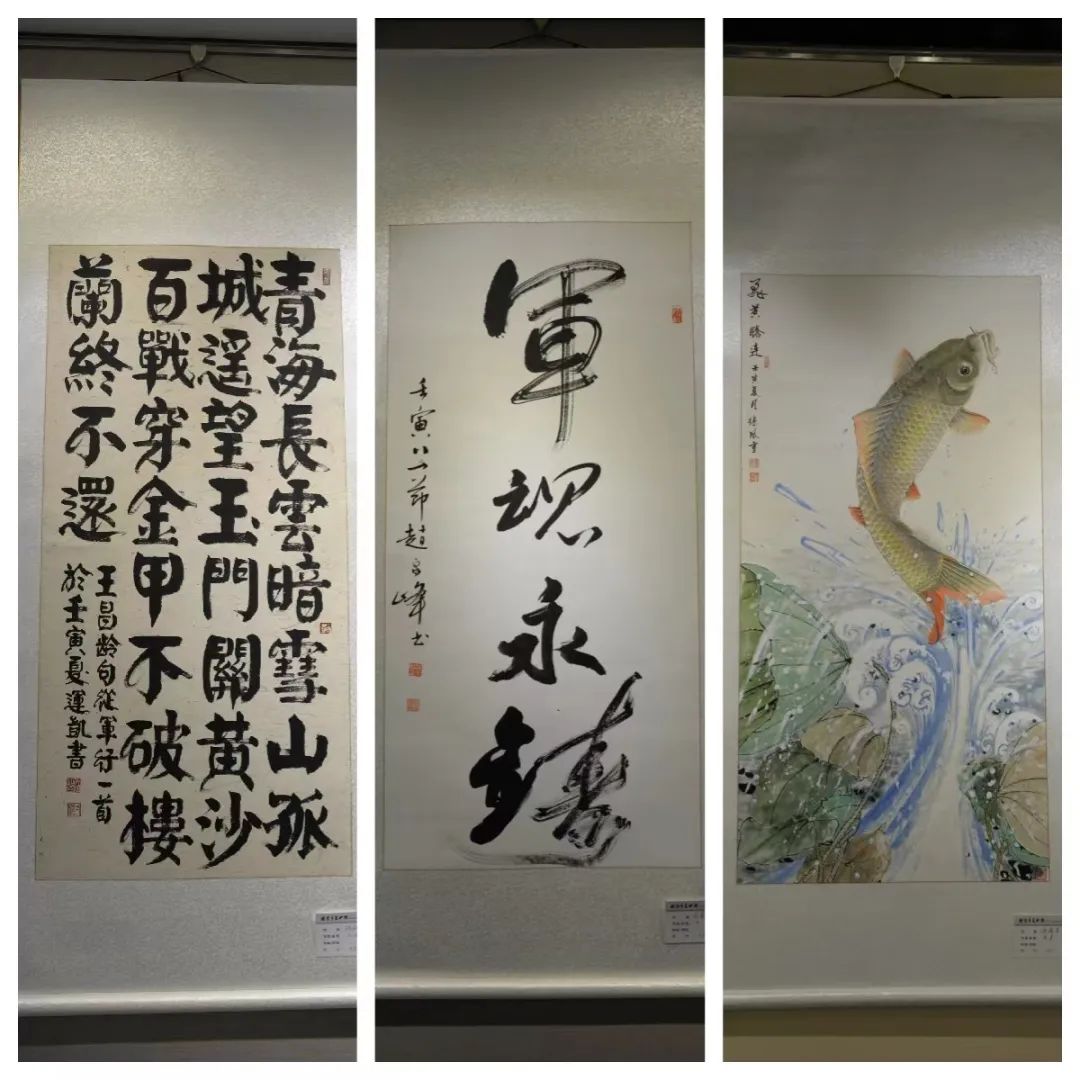 青海長雲暗雪山孤
城遥望玉門關黄沙
百戰穿金甲不破樓
蘭終不還
王昌龄句從軍行一首
於壬寅夏運凱書
軍魂永鑄
壬寅八一節趙峰书
飛黄騰達壬寅夏月